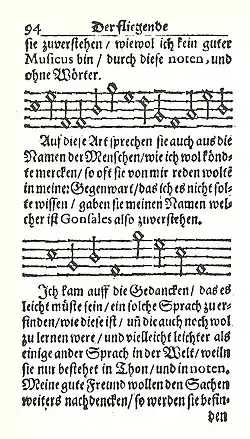 94 Der fliegende
sie zuverstehen / wiewol ich kein guter
Musicus bin / durch diese noten, und
ohne Wörter.
Auf diese Art sprechen sie auch aus die
Namen der Menschen / wie ich wol könd-
te mercken / so oft sie von mir reden wolte
in meiner Gegenwart / das ich es nicht sol-
te wissen / gaben sie meinen Namen wel-
cher ist Gonsales also zuverstehen.
Ich kam auff die Gedancken / das es
leicht müste sein / ein solche Sprach zu er-
finden / wie diese ist / uñ die auch noch wol
zu lernen were / und vielleicht leichter als
einige ander Sprach in der Welt / weiln
sie nur bestehet in Thon / und in noten.
Meine gute Freund wollen den Sachen
weiters nachdencken / so werden sie befin-
den